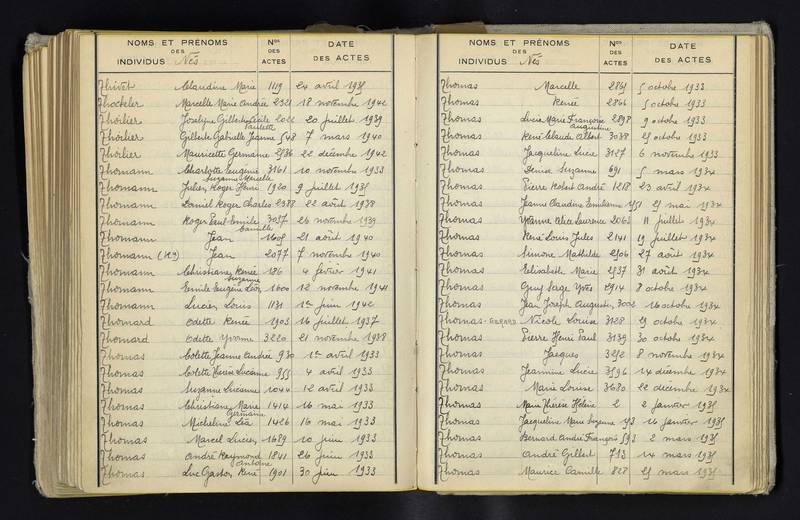 NOMS ET PRÉNOMS DES INDIVIDUS Nés
Nos DES ACTES
DATE DES ACTES
Thivet Claudine Marie 1119 24 avril 1935
Thockler Marcelle Marie Andrée 2321 18 novembre 1942
Thoilier Joselyne Gilberte Cécile 2022 20 juillet 1939
Paulette
Thoilier Gilberte Gabrielle Jeanne 548 7 mars 1940
Thoilier Mauricette Germaine 2586 22 décembre 1942
Thomann Charlotte Eugénie 3161 10 novembre 1933
Suzanne Marcelle
Thomann Julien Roger Henri 1920 9 juillet 1935
Thomann Daniel Roger Charles 2388 22 août 1938
Thomann Roger Paul Emile 3037 26 novembre 1939
Camille
Thomann Jean 1605 21 août 1940
Thomann Jean 2077 7 novembre 1940
Thomann Christiane Renée 186 4 février 1941
Suzanne
Thomann Emile Eugène Léon 2000 12 novembre 1941
Thomann Lucien Louis 1131 1er juin 1942
Thomard Odette Renée 1903 16 juillet 1937
Thomard Odette Yvonne 3220 21 novembre 1938
Thomas Colette Jeanne Andrée 930 1er avril 1933
Thomas Colette Lucienne 955 4 avril 1933
Thomas Suzanne Lucienne 1044 12 avril 1933
Thomas Christiane Marie 1414 16 mai 1933
Germaine
Thomas Micheline Léa 1426 16 mai 1933
Thomas Marcel Lucien 1689 10 juin 1933
Thomas André Raymond 1841 26 juin 1933
Antoine
Thomas Luc Gaston René 1901 30 juin 1933
NOMS ET PRÉNOMS DES INDIVIDUS Nés
Nos DES ACTES
DATE DES ACTES
Thomas Marcelle 2865 5 octobre 1933
Thomas Renée 2866 5 octobre 1933
Thomas Lucie Marie Françoise 2898 9 octobre 1933
Augustine
Thomas René Claude Albert 3038 25 octobre 1933
Thomas Jacqueline Lucie 3127 6 novembre 1933
Thomas Denise Suzanne 691 5 mars 1934
Thomas Pierre Robert André 1218 23 avril 1934
Thomas Jeanne Claudine Emilienne 25 mai 1934
Thomas Yvonne Alice Laurence 2063 11 juillet 1934
Thomas René Louis Jules 2141 19 juillet 1934
Thomas Simone Mathilde 2506 27 août 1934
Thomas Elisabeth Marie 2537 31 août 1934
Thomas Guy Serge Yves 2914 8 octobre 1934
Thomas Jean Joseph Augustin 3002 16 octobre 1934
Thomas-GERARD Nicole Louise 3128 29 octobre 1934
Thomas Pierre Henri Paul 3139 30 octobre 1934
Thomas Jacques 3252 8 novembre 1934
Thomas Jeannine Lucie 3596 14 décembre 1934
Thomas Marie Louise 3680 22 décembre 1934
Thomas Marie Thérèse Hélène 2 2 janvier 1935
Thomas Jacqueline Marie Suzanne 16 janvier 1935
Thomas Bernard André François 593 2 mars 1935
Thomas André Gilbert 713 14 mars 1935
Thomas Maurice Camille 828 25 mars 1935